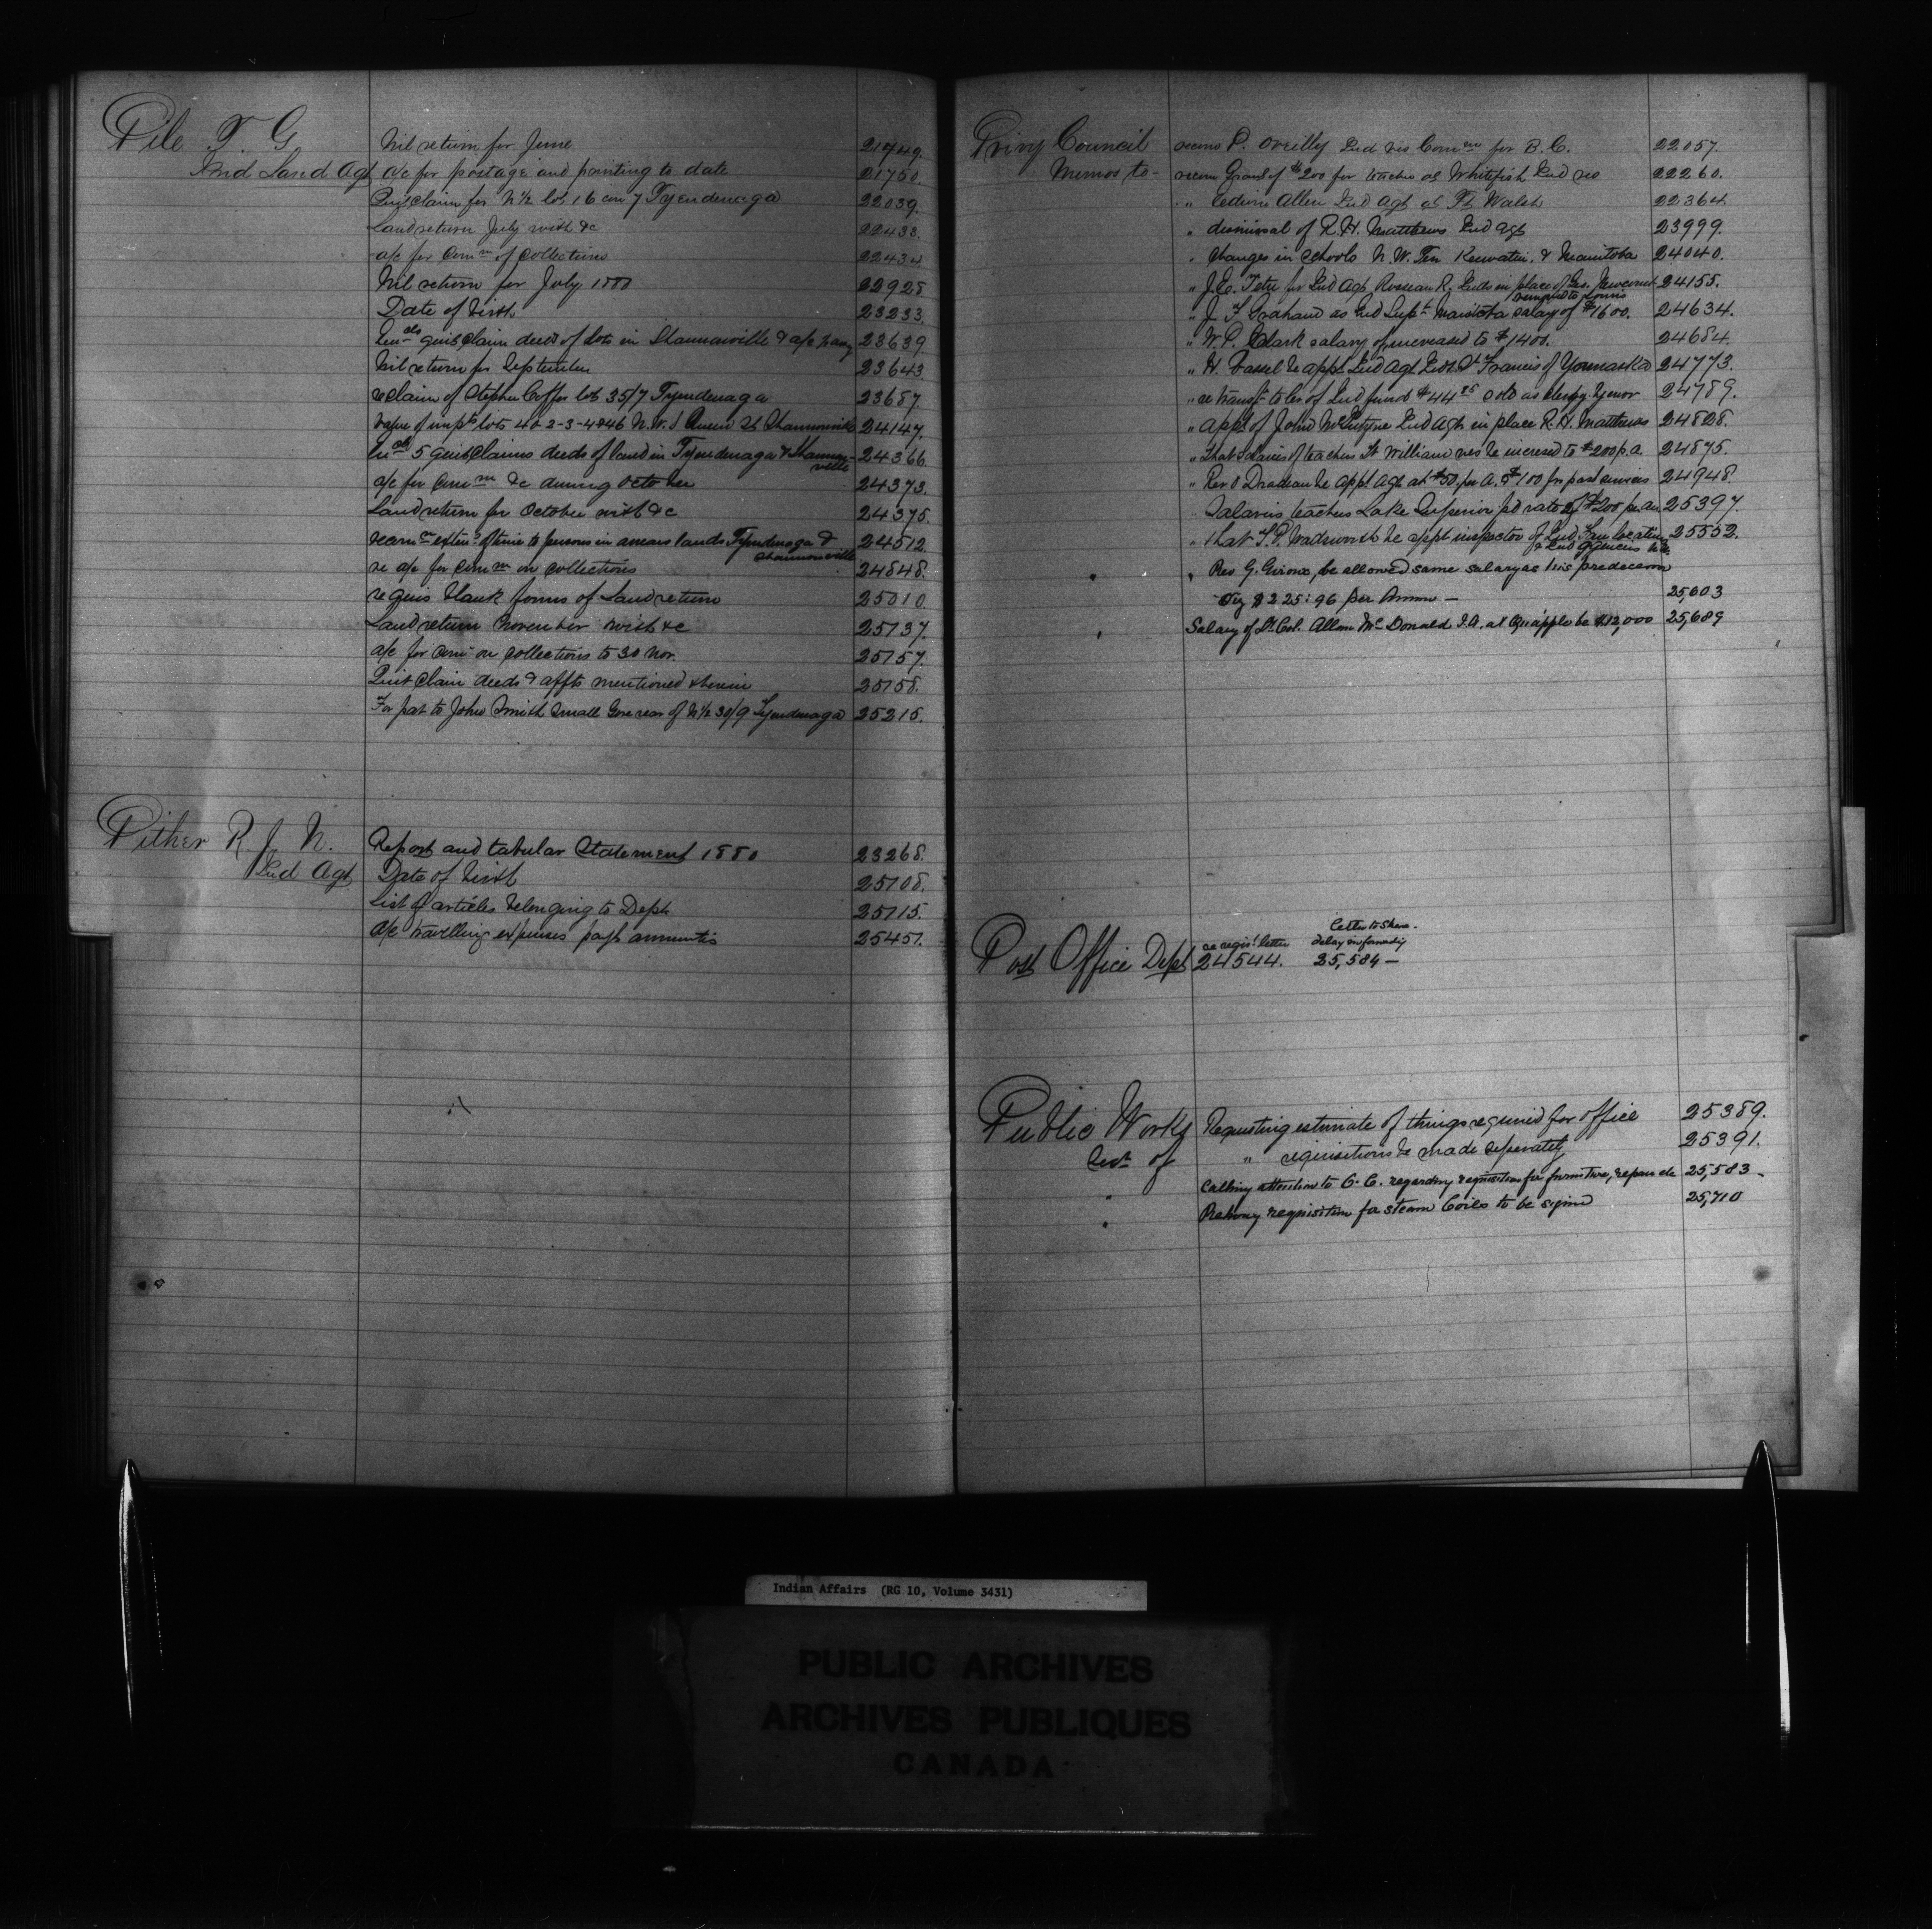 Pile T. G. Nil return for June 21749.
Ind Land Agt a/c for postage and printing to date 21750.
Quit claim for N½ lot 16 con 7 Tyendenaga 22039.
Land return July with &c 22433.
a/c for Comn of collections 22434
Nil return for July 1880 22925.
Date of birth 23233.
quit claim deeds of lots in Shannonville & a/c 23639
Nil return for September 23643.
re claim of Stephen Coffer lot 35/7 Tyendenaga 23687.
Value of impts lots 40-2-3-4 & 46 N.W. Queen St Shannonville 24147.
5 quit claims deeds of land in Tyendenaga & Shannonville 24366.
a/c for Comn &c during October 24373.
Land return for October with &c 24375.
recom exten of time to persons in arrears lands Tyendenaga & Shannonville 24512.
re a/c for Comn on collections 24848.
requis blank forms of Land return 25010
Land return November with &c 25137.
a/c for Comn on collections to 30 Nov. 25157.
Quit claim deeds & affts mentioned therein 25158.
For pat to John Smith Small Gore rear of N½ 30/9 Tyendenaga 25215.
Pither R. J. N. Report and tabular Statement 1880 23268.
Ind Agt Date of birth 25108.
List of articles belonging to Dept 25115.
a/c travelling expenses payt annuities 25451.
Privy Council recom P. OReilly Ind res Comn for B. C. 22057.
Memos to - recom Grant of $200 for teacher at Whitefish Ind res 22260.
" Edwin Allen Ind Agt at Ft Walsh 22364
" dismissal of R. H. Matthews Ind Agt 23999.
" Changes in schools N. W. Ter Keewatin & Manitoba 24040.
" J. E. Tetu for Ind Agt Roseau R. Inds in place of Geo. Newcomb 24155.
" J. F. Graham as Ind Supt Manitoba salary of $1600. 24634.
" W. P. Clark salary of, increased to $1400. 24684.
" H. Vassal be appt Ind Agt Inds St Francis of Yamaska 24773.
" re transf to Ind funds $44 24789.
" appt of John McIntyre Ind Agt in place R. H. Matthews 24828.
" that salaries of teachers Ft William res be incresed to $200 p.a 24875.
" Rev be appt Agt at $50 per A. $100 for past services 24948.
" Salaries teachers Lake Superior pd rate of $200 per an 25397.
" that T. P. Wadsworth be appt inspector of Ind Farm locations & Ind Agencies 25552.
" Rev G. Giroux, be allowed same salary as his predecessor
Viz $225.96 per Annum — 25,603
Salary of Lt. Col. Allan McDonald I.A. at Qu'appelle be $12,000 25,689
Letter to
re regisd letter delay in forwardig
Post Office Dept 24544. 25,584 —
Public Works Requesting estimate of things required for office 25389.
Dept of " requisitions be made seperately 25391.
" Calling attention to O. C. regarding requisition for furniture, repairs etc 25,583 —
" requisition for steam Coils to be signed 25,710
Indian Affairs (RG 10, Volume 3431)
PUBLIC ARCHIVES
ARCHIVES PUBLIQUES
CANADA